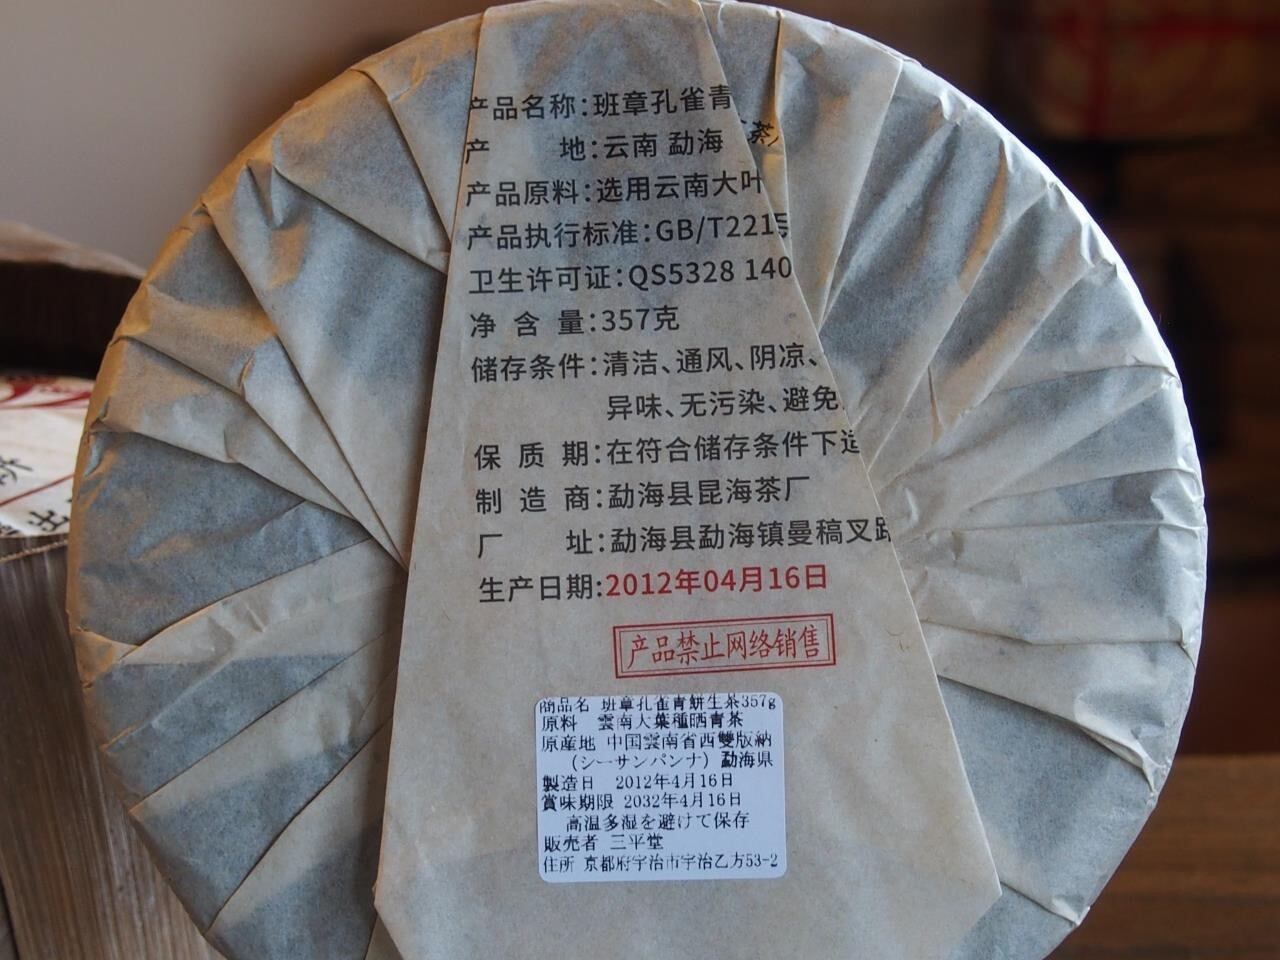 产品名称:班章孔雀青
茶
产 地:云南 勐海
产品原料:选用云南大叶
产品执行标准:GB/T221
卫生许可证:QS5328 140
净 含 量:357克
储存条件:清洁、通风、阴凉、
异味、无污染、避免
保 质 期:在符合储存条件下适
制 造 商:勐海县昆海茶厂
厂 址:勐海县勐海镇曼稿叉路
生产日期:2012年04月16日
产品禁止网络销售
商品名 班章孔雀青餅生茶357g
原料 雲南大葉種晒青茶
原産地 中国雲南省西雙版納
(シーサンパンナ) 勐海県
製造日 2012年4月16日
賞味期限 2032年4月16日
高温多湿を避けて保存
販売者 三平堂
住所 京都府宇治市宇治乙方53-2